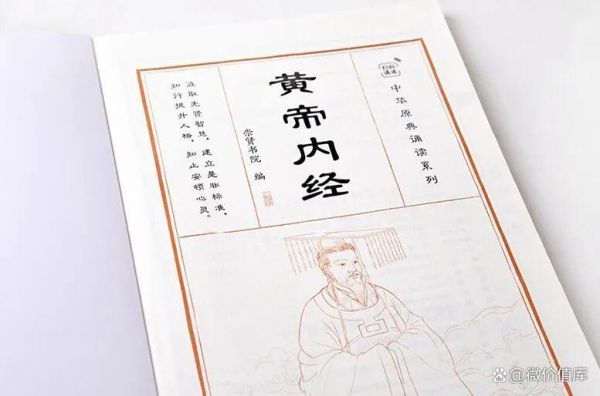 扫码
诵读
中华原典诵读系列
黄帝内经
崇贤书院 编
汲取先贤智慧，建立是非标准，
知行提升人格，知止安顿心灵。
@微价值库